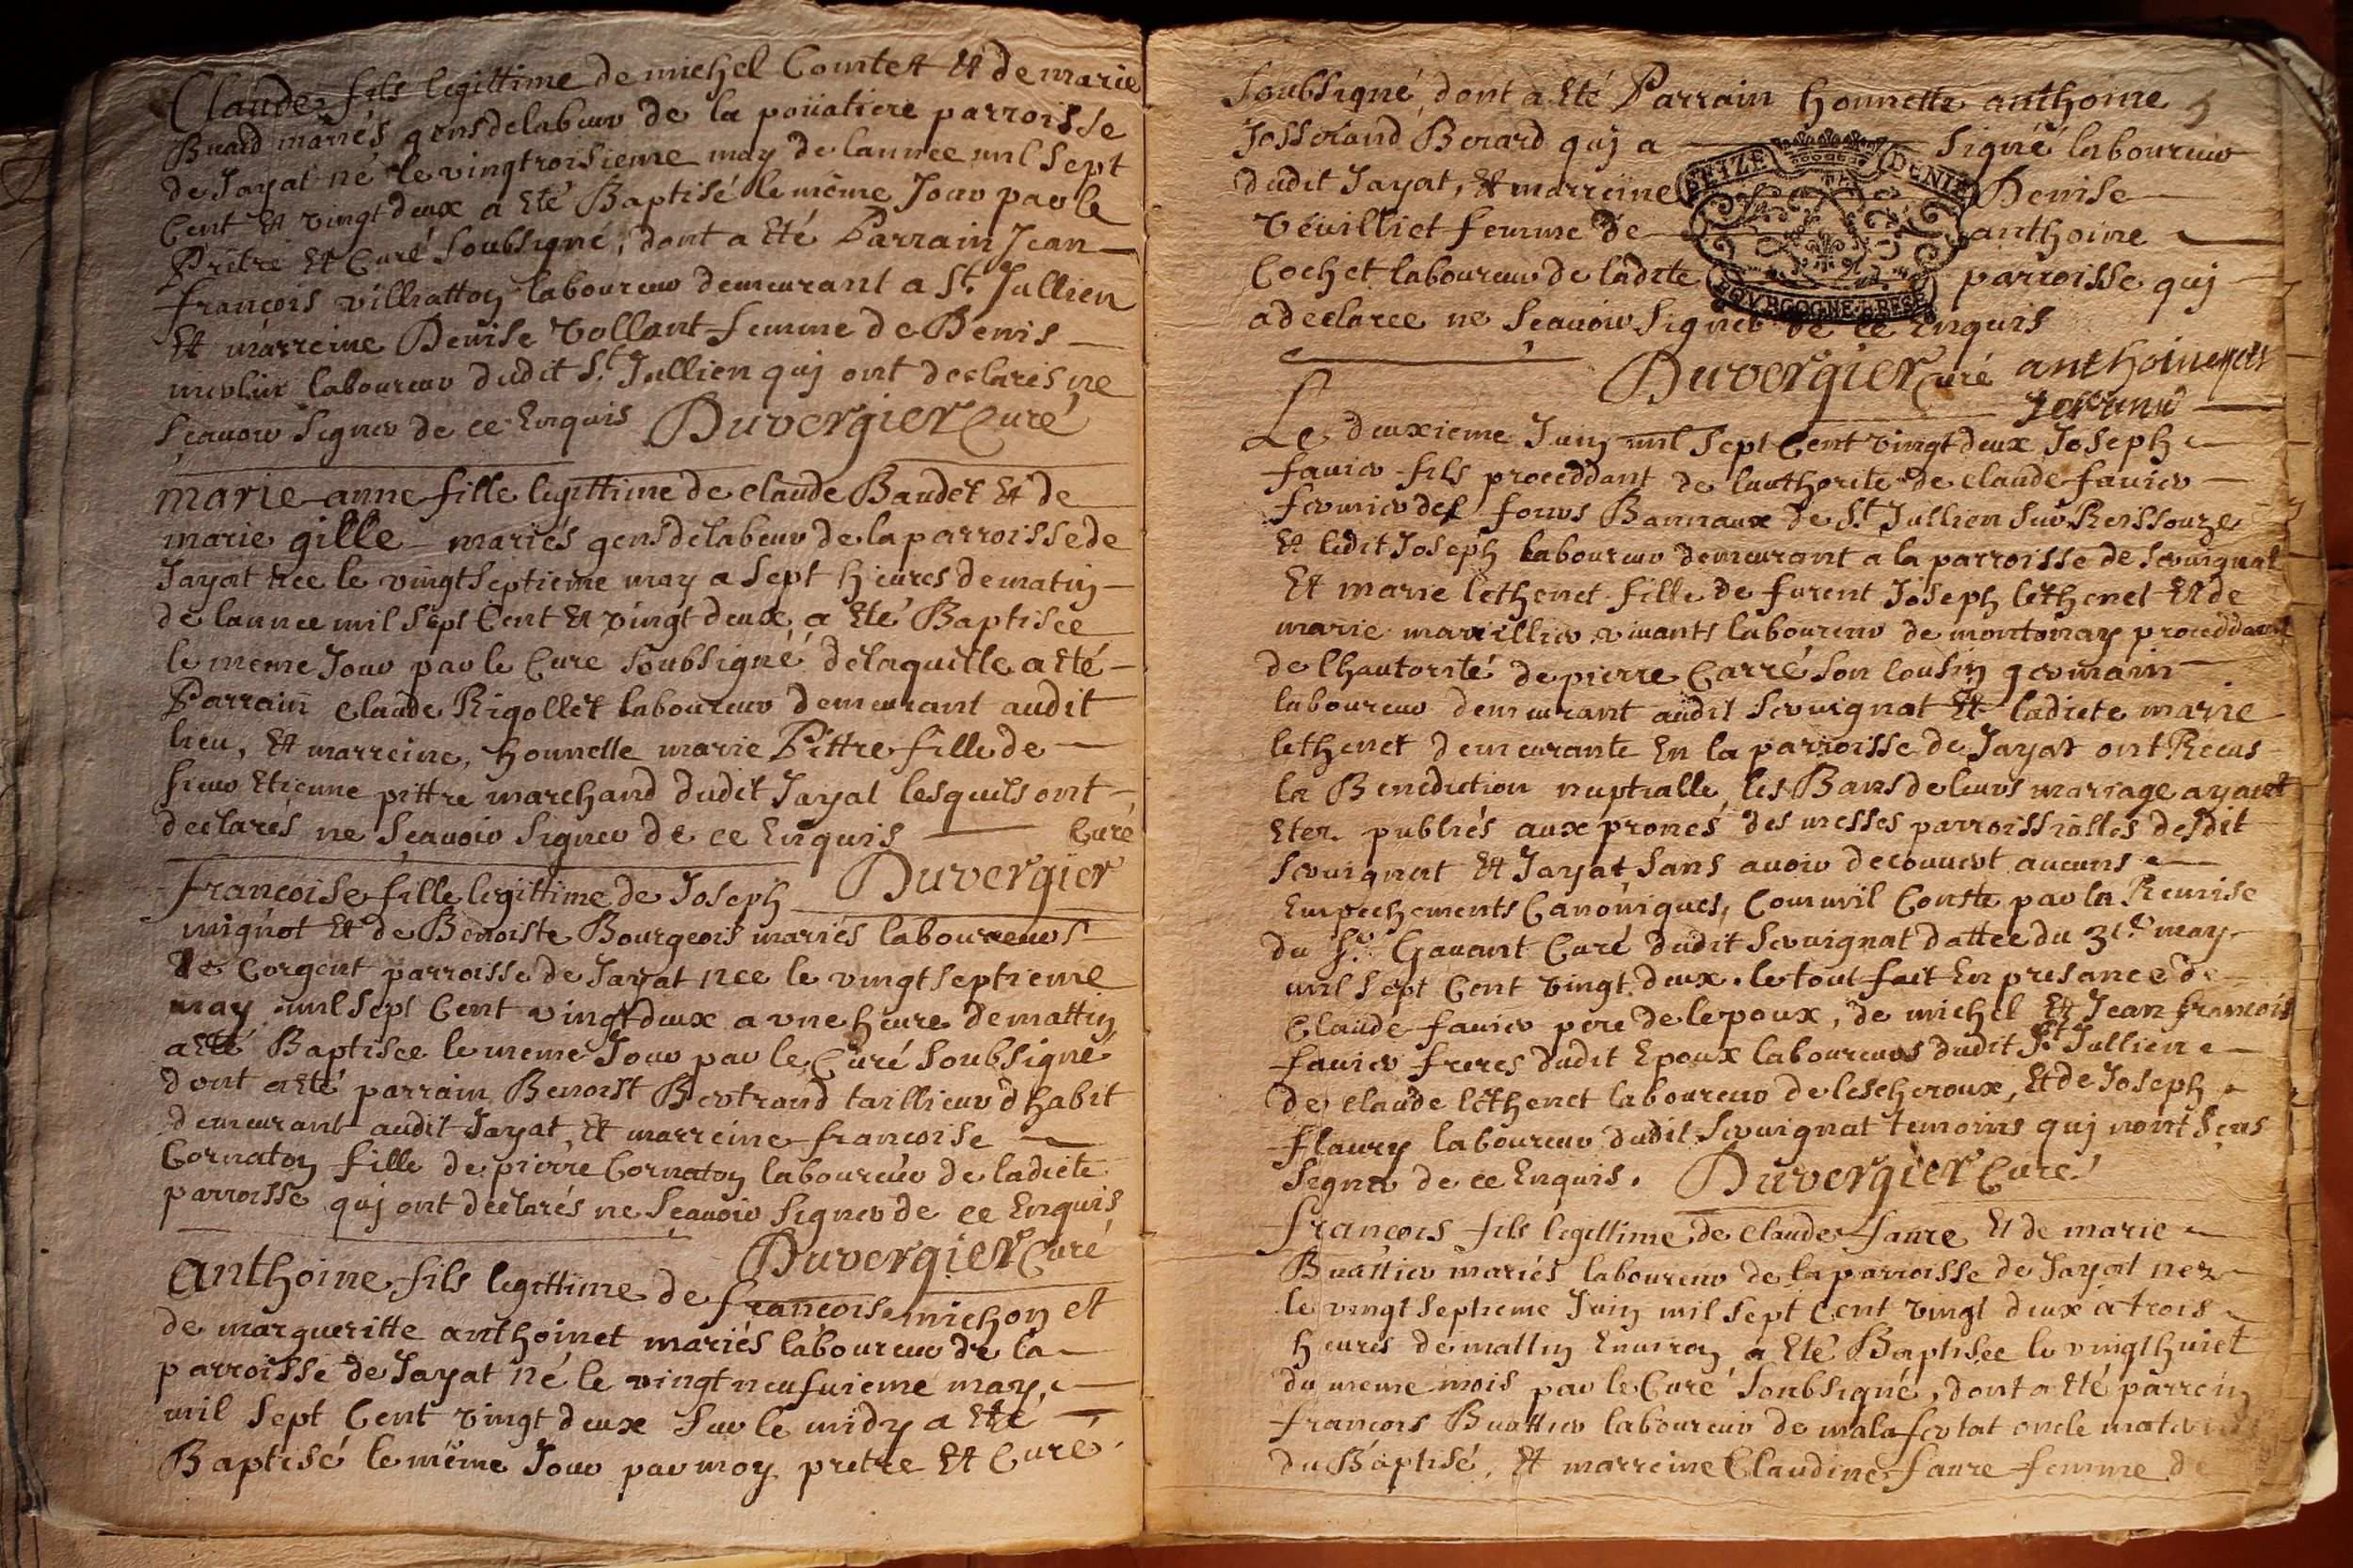 Claude fils legittime de michel Comtet Et de marie
Buard mariés gens de labeur de la poüatiere parroisse
de Jayat né le vingtroisieme may de lannee mil sept
Cent Et vingt deux a Eté Baptisé le même Jour par le
Prêtre Et Curé soubsigné, dont a Eté Parrain Jean
françois villiatton laboureur demeurant a St. Jullien
Et marreine Denise Vollant femme de Denis
laboureur dudit St. Jullien quj ont declarés ne
sçauoir signer de ce Enquis Duvergier Curé
marie anne fille legittime de claude Baudet Et de
marie gille mariés gens de labeur de la parroisse de
Jayat nee le vingt septieme may a sept heures de matin
de lannee mil sept Cent Et vingt deux a Eté Baptisee
le meme Jour par le Cure soubsigné delaquelle a Eté
Parrain claude Rigollet laboureur demeurant audit
lieu, Et marreine, honnette marie Pittre fille de
sieur Etienne pittre marchand dudit Jayat lesquels ont
declarés ne sçauoir signer de ce Enquis Curé
Duvergier
francoise fille legittime de Joseph
mignot Et de Benoiste Bourgeois mariés laboureurs
de Corgent parroisse de Jayat nee le vingt septieme
may mil sept Cent vingt deux a vne heure de mattin
a Eté Baptisee le meme Jour par le Curé soubsigné
dont a Eté parrain Benoist Bertrand taillieur dhabit
demeurant audit Jayat, Et marreine francoise
Cornaton fille de pierre Cornaton laboureur de ladicte
parroisse quj ont declarés ne sçauoir signer de ce Enquis
Duvergier Curé
anthoine fils legittime de francoise michon et
de margueritte anthoinet mariés laboureur de la
parroisse de Jayat né le vingt neufuieme may,
mil sept Cent vingt deux sur le midy a Eté
Baptisé le même Jour par moy prètre Et Curé
soubsigné, dont a Eté Parrain honnette anthoine
Josserand Berard quj a signé laboureur
dudit Jayat, Et marreine Denise
Veuilliet femme de anthoine
Cochet laboureur de ladite parroisse quj
a declaree ne sçauoir signer de ce Enquis
SEIZE DENIE
BOVRGOGNE BRESE
Duvergier Curé
Le deuxieme Juin mil sept Cent vingt deux Joseph
fauier fils proceddant de lauthorite de claude fauier
fermier des fours Bannaux de St. Jullien sur Reissouze
Et ledit Joseph laboureur demeurant a la parroisse de seruignat
Et marie lethenet fille de furent Joseph lethenet Et de
marie marillier viuants laboureur de montonay proceddant
de lhautorité de pierre Carré son cousin germain
laboureur demeurant audit seruignat Et ladicte marie
lethenet demeurante En la parroisse de Jayat ont Receus
la Benediction nuptialle, les Bans de leurs mariage ayant
Etez publiés aux pronés des messes parroissialles desdit
seruignat Et Jayat sans auoir decouuert aucuns
Empechements Canoniques, Comm'il Conste par la Remise
du Sr. Gauant Curé dudit seruignat dattee du 31e may
mil sept Cent vingt deux. le tout fait En presance de
Claude fauier pere de lepoux, de michel Et Jean francois
fauier freres dudit Epoux laboureurs dudit St. Jullien
de claude lethenet laboureur de lescheroux, Et de Joseph
flaury laboureur dudit seruignat temoins quj nont sçeus
segner de ce Enquis. Duvergier Curé
françois fils legittime de claude faure Et de marie
Buattier mariés laboureur de la parroisse de Jayat nez
le vingt septieme Juin mil sept Cent vingt deux a trois
heures de mattin Enuiron a Eté Baptisee le vingt huict
du meme mois par le Curé soubsigné, dont a Eté parrein
francois Buattier laboureur de malafertat oncle
du Baptisé, Et marreine Claudine faure femme de